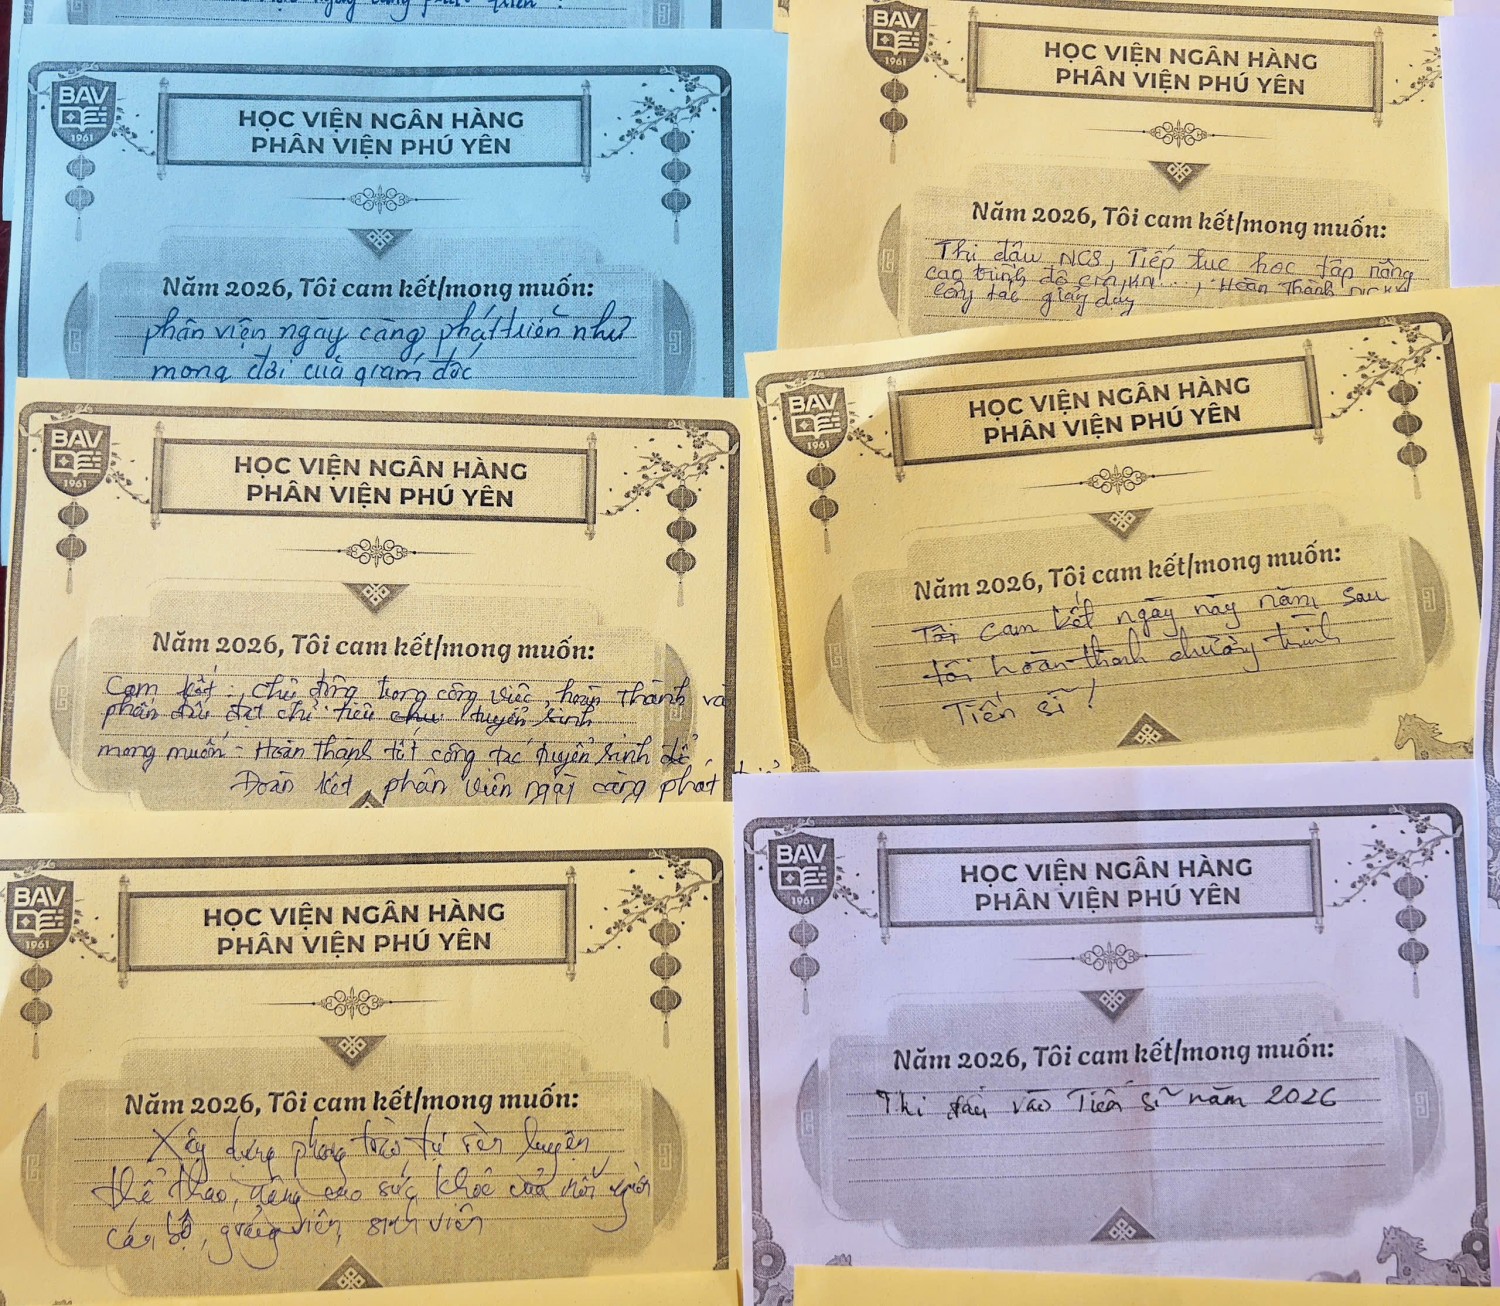 ngày càng phát triển.
BAV
1961
HỌC VIỆN NGÂN HÀNG
PHÂN VIỆN PHÚ YÊN
Năm 2026, Tôi cam kết/mong muốn:
phân viện ngày càng phát triển như
mong đợi của giám đốc
BAV
1961
HỌC VIỆN NGÂN HÀNG
PHÂN VIỆN PHÚ YÊN
Năm 2026, Tôi cam kết/mong muốn:
Thi đậu NCS, Tiếp tục học tập nâng
cao trình độ cm, , Hoàn Thành
công tác giảng dạy
BAV
1961
HỌC VIỆN NGÂN HÀNG
PHÂN VIỆN PHÚ YÊN
Năm 2026, Tôi cam kết/mong muốn:
Cam kết: chủ động trong công việc, hoàn thành và
phấn đấu đạt chỉ tiêu tuyển sinh
mong muốn - Hoàn thành tốt công tác tuyển sinh để
Đoàn kết phân viện ngày càng phát
BAV
1961
HỌC VIỆN NGÂN HÀNG
PHÂN VIỆN PHÚ YÊN
Năm 2026, Tôi cam kết/mong muốn:
Tôi cam kết ngày này năm sau
tôi hoàn thành chương trình
Tiến sĩ!
BAV
1961
HỌC VIỆN NGÂN HÀNG
PHÂN VIỆN PHÚ YÊN
Năm 2026, Tôi cam kết/mong muốn:
Xây dựng phong trào tự rèn luyện
thể thao, nâng cao sức khỏe của mỗi người
cán bộ, giảng viên, sinh viên
BAV
1961
HỌC VIỆN NGÂN HÀNG
PHÂN VIỆN PHÚ YÊN
Năm 2026, Tôi cam kết/mong muốn:
Thi đậu vào Tiến sĩ năm 2026